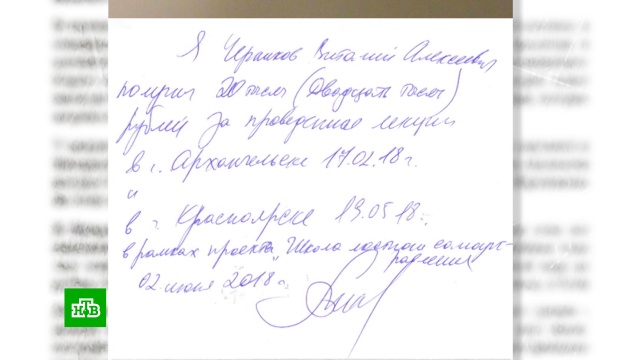 Я Черников Виталий Алексеевич
получил 20 тысяч (двадцать тысяч)
рублей за проведение лекции
в г. Архангельске 17.02.18 г.
и
в г. Красноярске 19.05.18 г.
в рамках проекта "Школа местного самоуп-
равления"
02 июня 2018 г.
НТВ